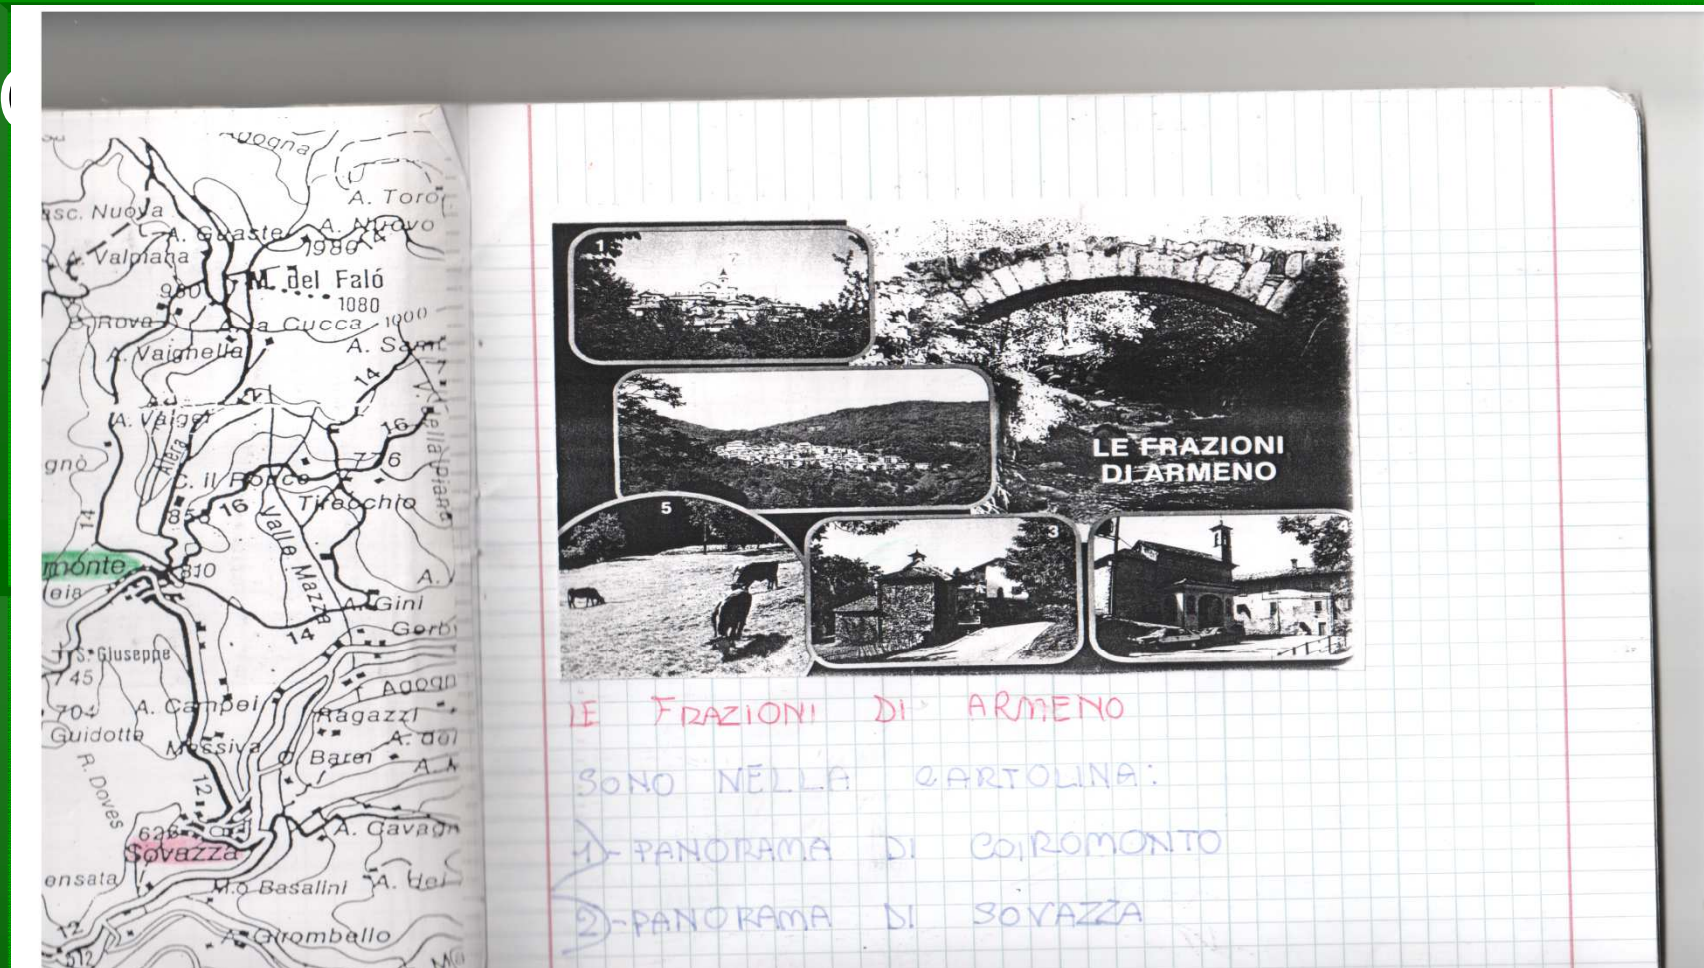 ogogna
A. Toro
asc. Nuova
A. Guaste
A. Nuovo
1986
A. Valpiana
M. del Faló
980
1080
Rova
A. la Cucca
1000
A. Vaighella
A. Sam
14
A. Valgei
16
gnò
Aleia
776
C. il Ronco
ella piana
858
16
Tirecchio
14
Valle Mazza
monte
810
leia
A.
A. Gini
14
Gorb
S. Giuseppe
745
Agogn
704
A. Campei
Ragazzi
Guidotto
Massiva
A. del
C. Barei
R. Doves
12
628
A. Cavagn
Sovazza
ensata
M.o Basalini
A. del
12
A. Girombello
512
1
2
LE FRAZIONI
DI ARMENO
5
3
LE FRAZIONI DI ARMENO
SONO NELLA CARTOLINA:
1)-PANORAMA DI COIROMONTO
2)-PANORAMA DI SOVAZZA